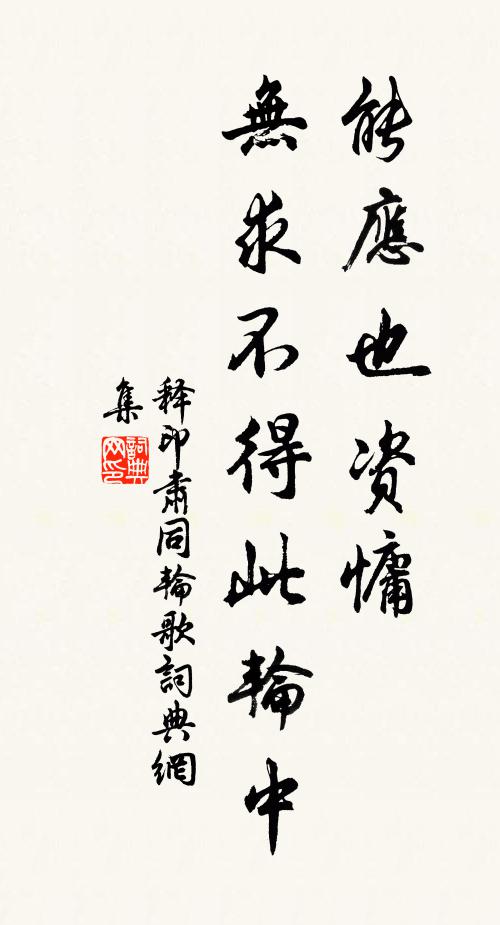 能應也資慵
無求不得此輪中
释印肅同輪歌詞典網
集
詞典
网印